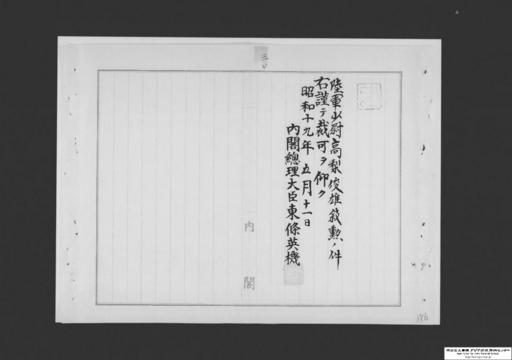 陸軍少尉高梨俊雄叙勲ノ件
右謹テ裁可ヲ仰ク
昭和十九年五月十一日
内閣總理大臣東條英機
内閣